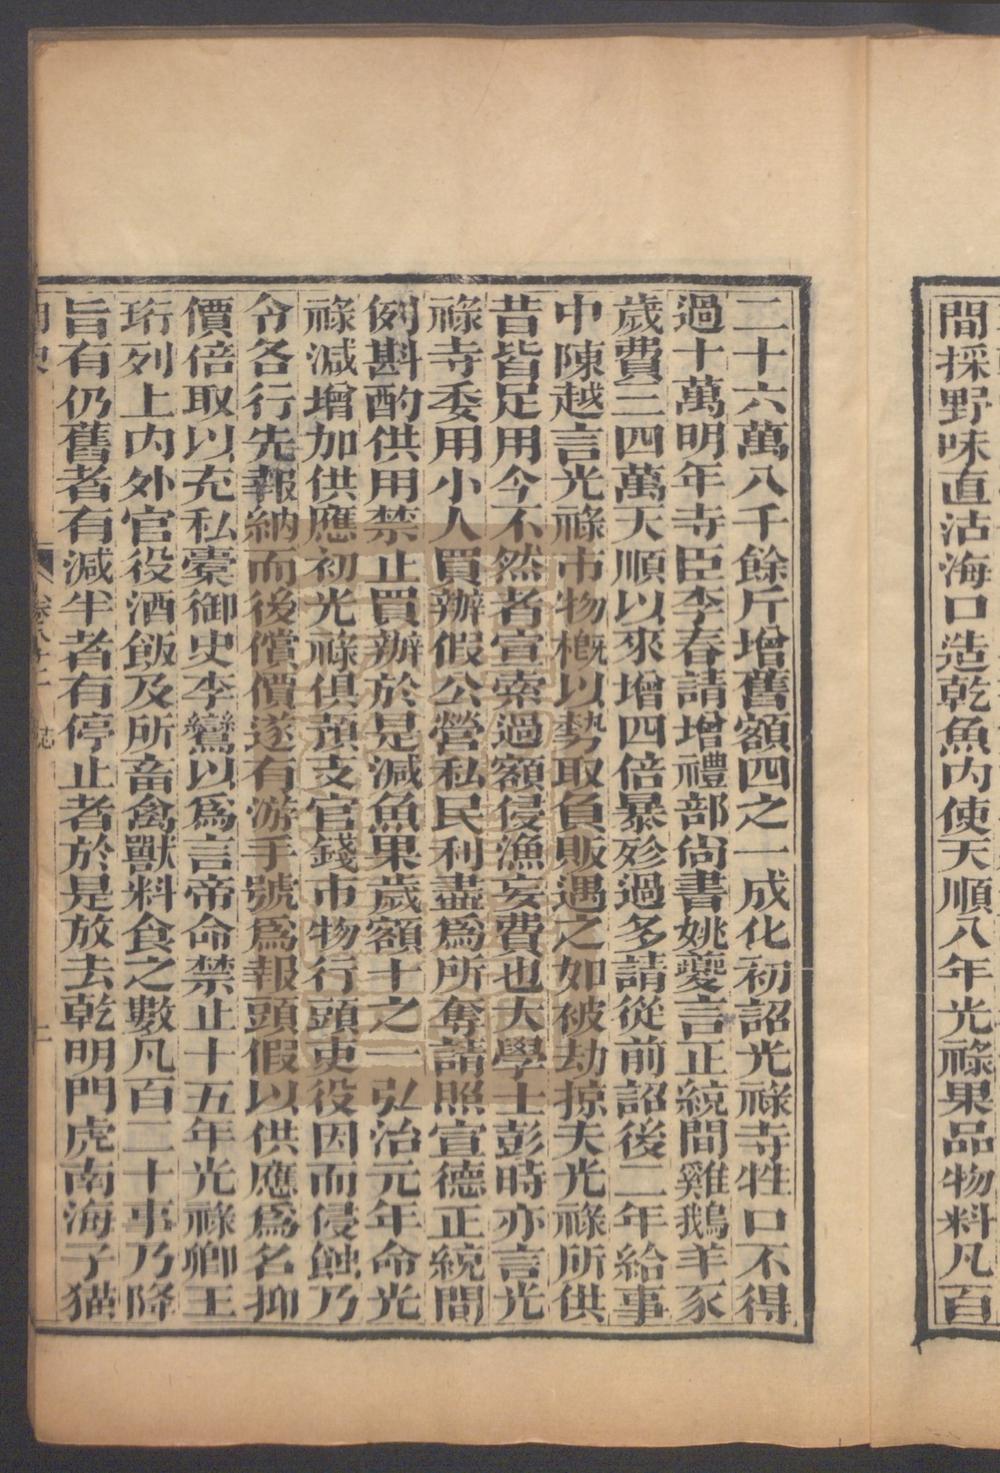 間採野味直沽海口造乾魚內使天順八年光祿果品物料凡百
二十六萬八千餘斤增舊額四之一成化初詔光祿寺牲口不得
過十萬明年寺臣李春請增禮部尚書姚夔言正統間雞鵝羊豕
歲費三四萬天順以來增四倍暴殄過多請從前詔後二年給事
中陳越言光祿市物槪以勢取負販遇之如被劫掠夫光祿所供
昔皆足用今不然者宣索過額侵漁妄費也大學士彭時亦言光
祿寺委用小人買辦假公營私民利盡爲所奪請照宣德正統間
例斟酌供用禁止買辦於是減魚果歲額十之一弘治元年命光
祿減增加供應初光祿俱預支官錢市物行頭吏役因而侵蝕乃
令各行先報納而後償價遂有游手號爲報頭假以供應爲名抑
價倍取以充私橐御史李鸞以爲言帝命禁止十五年光祿卿王
珩列上內外官役酒飯及所畜禽獸料食之數凡百二十事乃降
旨有仍舊者有減半者有停止者於是放去乾明門虎南海子猫